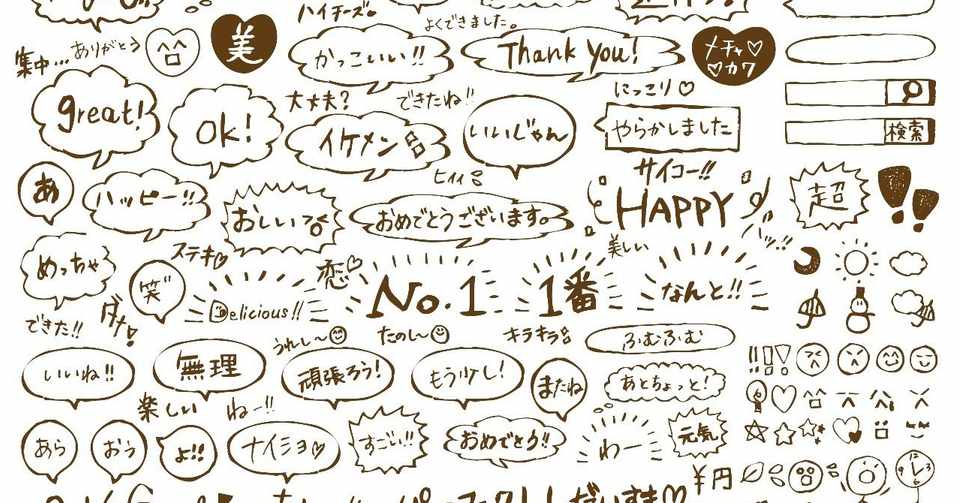 ハイチーズ。
よくできました。
集中…
ありがとう
美
かっこいい!!
Thank You!
メチャ♡
♡カワ
great!
ok!
大丈夫?
できたね!!
にっこり♡
イケメン
いいじゃん
やらかしました
検索
サイコー!!
あ
ハッピー!!
ヒィィ
おしいっ
おめでとうございます。
HAPPY
超
!!
めっちゃ
ステキ
笑
恋
美しい
バッ!!
Delicious!!
No.1
1番
なんと!!
できた!!
ダナ!
うれし〜
たのし〜
キラキラ
ふむふむ
いいね!!
無理
頑張ろう!
もう少し!
またね
あとちょっと!
!!
!?
楽しい
ねー!!
あら
おう
よ!!
ナイショ♡
すごい!!
おめでとう!!
わー
元気
¥
円